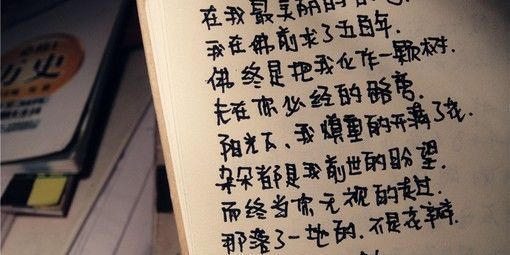 历史
在我最美丽的
我在佛前求了五百年.
佛终是把我化作一颗树.
夫在你必经的路旁.
阳光下、我慎重的开满了花.
朵朵都是我前世的盼望.
而终当你无视的走过.
那落了一地的.不是花瓣.